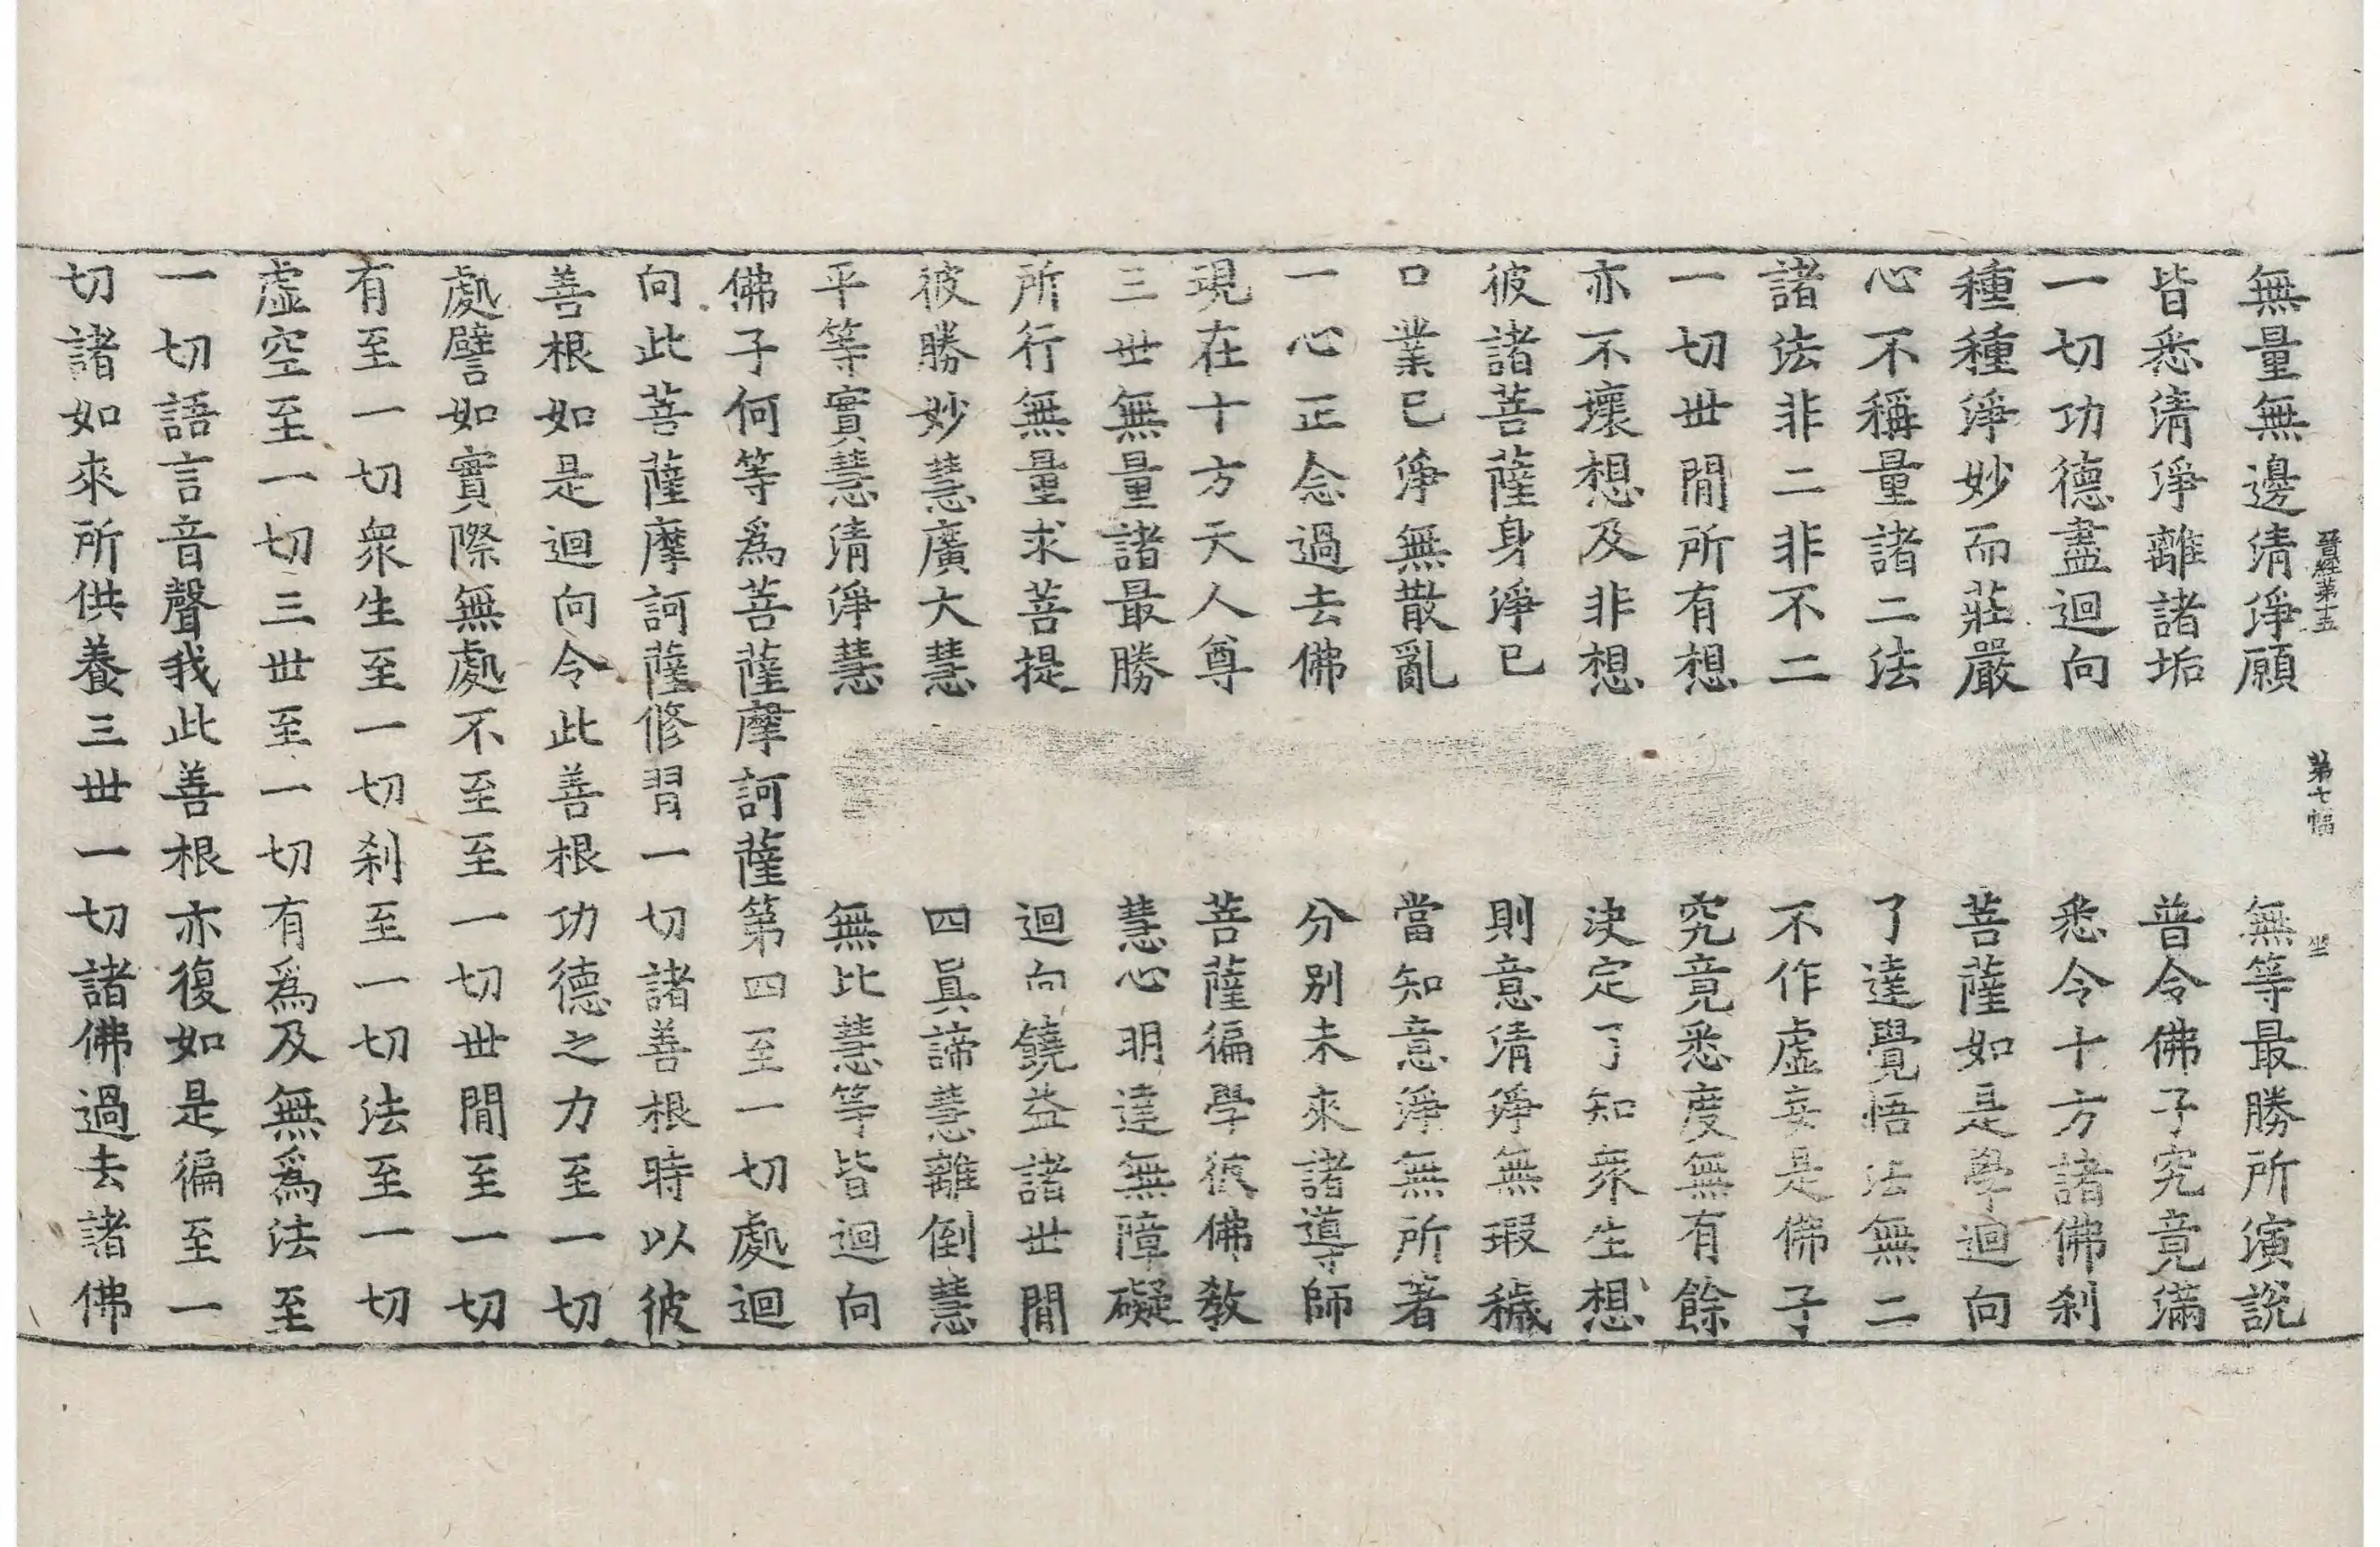 晉經第十五 第七幅
無量無邊清淨願 無等最勝所演說
皆悉清淨離諸垢 普令佛子究竟滿
一切功德盡迴向 悉令十方諸佛刹
種種淨妙而莊嚴 菩薩如是學迴向
心不稱量諸二法 了達覺悟法無二
諸法非二非不二 不作虛妄是佛子
一切世閒所有想 究竟悉度無有餘
亦不壞想及非想 決定了知衆生想
彼諸菩薩身淨已 則意清淨無瑕穢
口業已淨無散亂 當知意淨無所著
一心正念過去佛 分別未來諸導師
現在十方天人尊 菩薩徧學彼佛教
三世無量諸最勝 慧心明達無障礙
所行無量求菩提 迴向饒益諸世閒
彼勝妙慧廣大慧 四眞諦慧離倒慧
平等實慧清淨慧 無比慧等皆迴向
佛子何等爲菩薩摩訶薩第四至一切處迴
向此菩薩摩訶薩修習一切諸善根時以彼
善根如是迴向令此善根功德之力至一切
處譬如實際無處不至至一切世閒至一切
有至一切衆生至一切刹至一切法至一切
虛空至一切三世至一切有爲及無爲法至
一切語言音聲我此善根亦復如是徧至一
切諸如來所供養三世一切諸佛過去諸佛